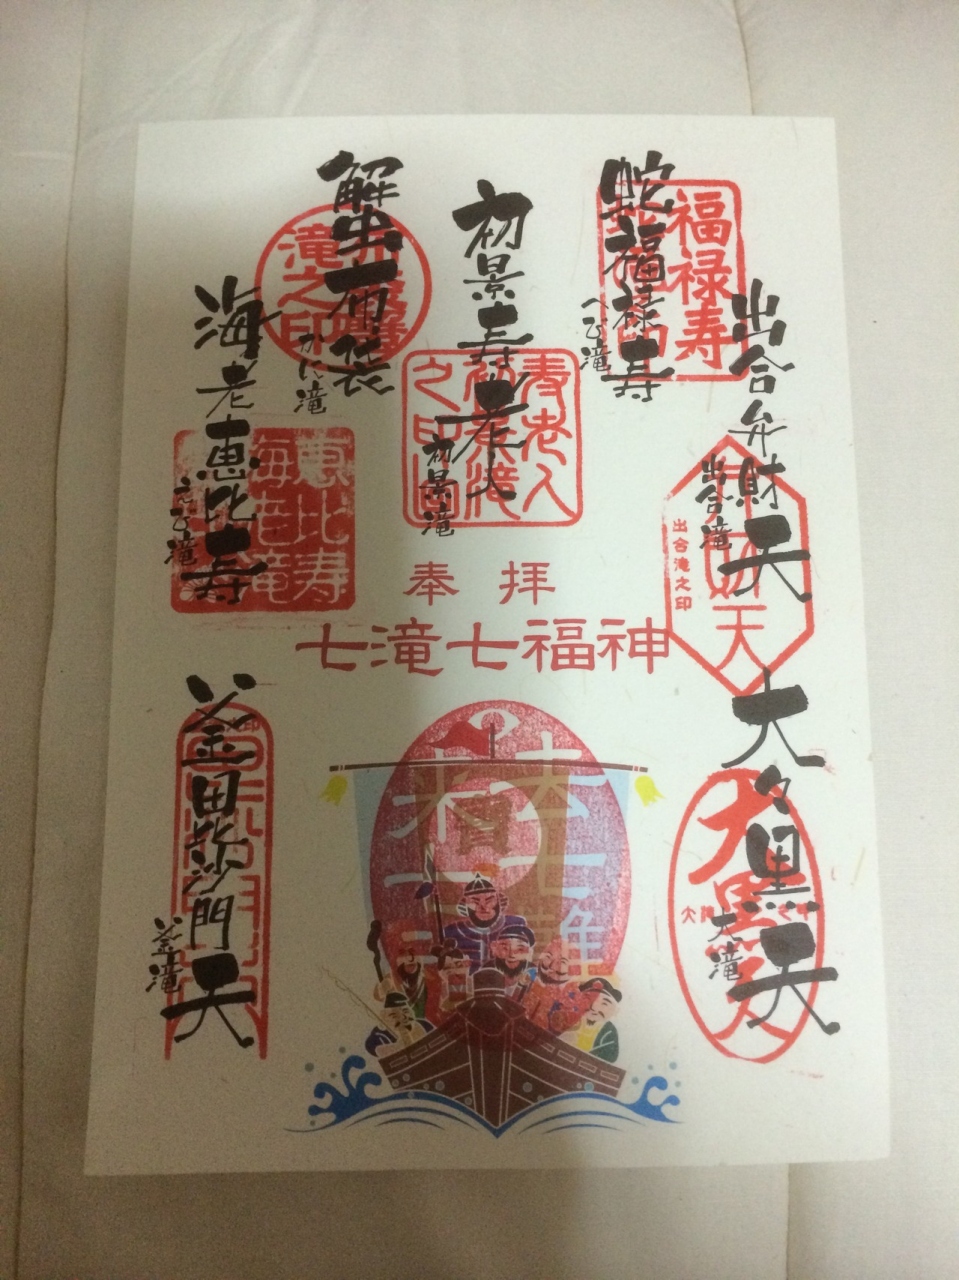 大々黒天
大滝
出合弁財天
出合滝
弁財天
出合滝之印
蛇福禄寿
へび滝
福禄寿
初景寿老人
初景滝
寿老人
初景滝
之印
蟹布袋
かに滝
滝之印
海老恵比寿
えび滝
恵比寿
海老滝
釜毘沙門天
釜滝
奉拝
七滝七福神